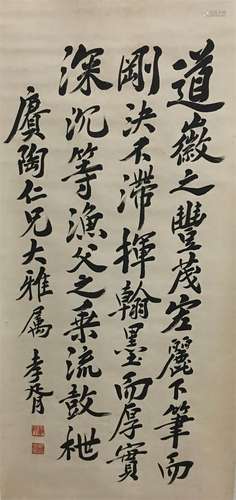 道徽之豐茂宏麗下筆而
剛決不滯揮翰墨而厚實
深沉等漁父之乗流鼓枻
賡陶仁兄大雅属 李胥